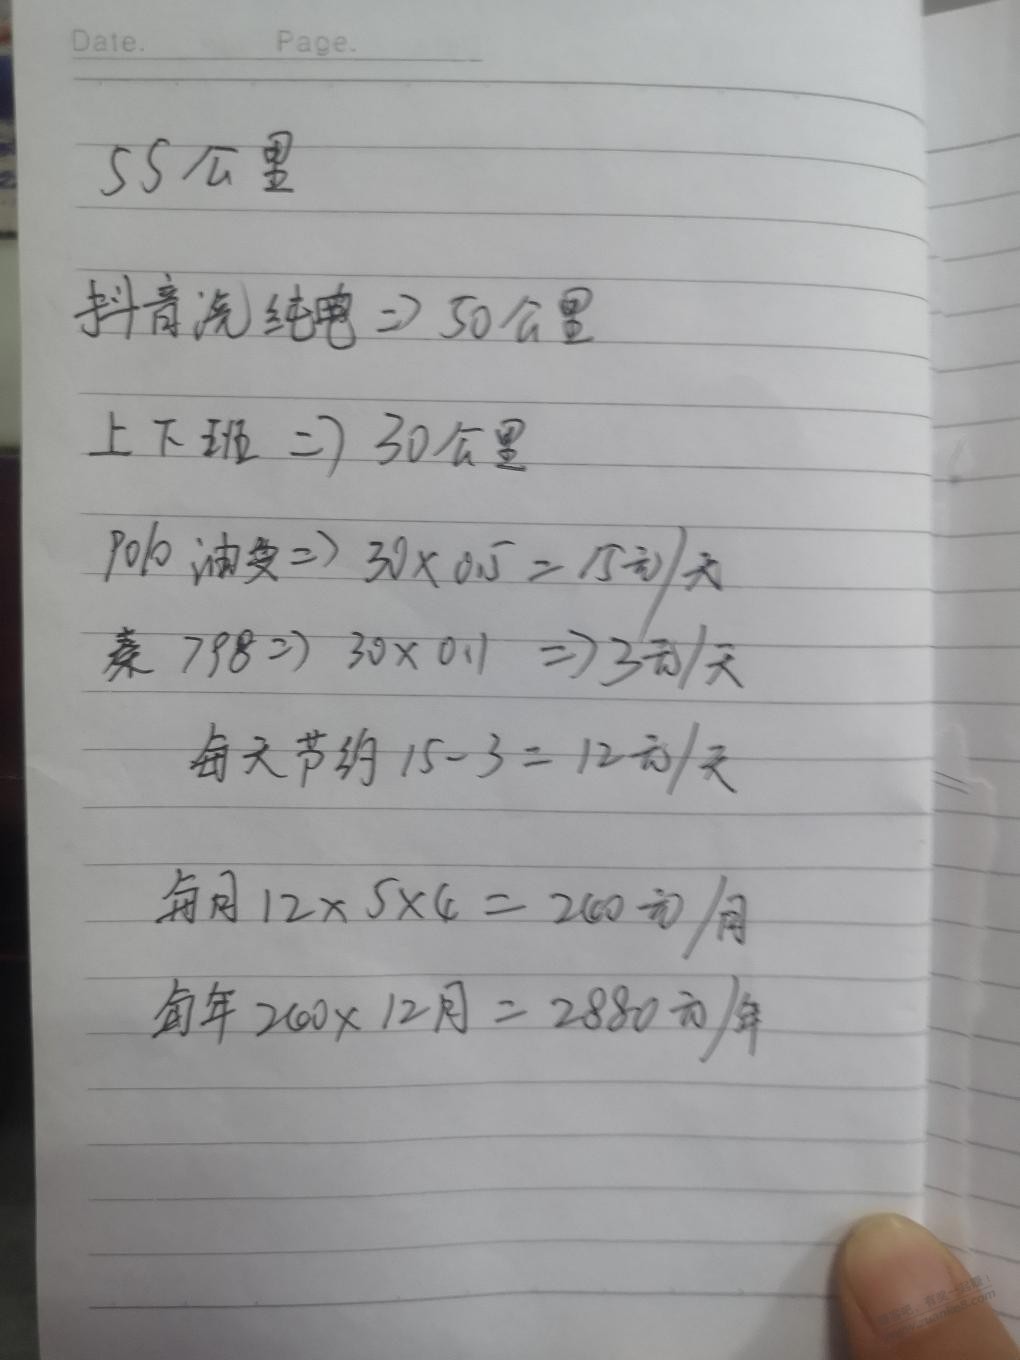 Date. Page.
55公里
抖音说纯电=>50公里
上下班=>30公里
polo油费=>30×0.5=15元/天
秦798=>30×0.1=>3元/天
每天节约15-3=12元/天
每月12×5×4=240元/月
每年240×12月=2880元/年